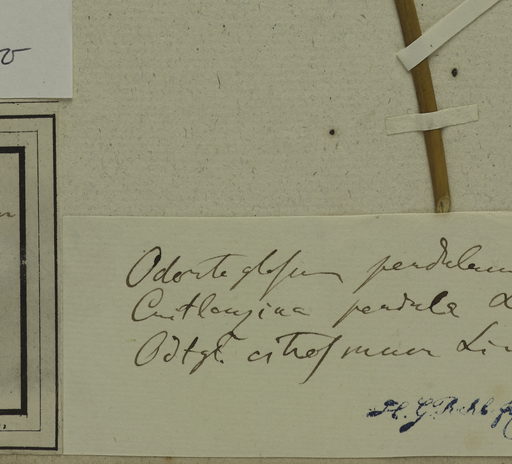 Odontoglossum pendulum
Cuitlauzina pendula L
Odtgl. citrosmum Lin
H. G. Rchb. f